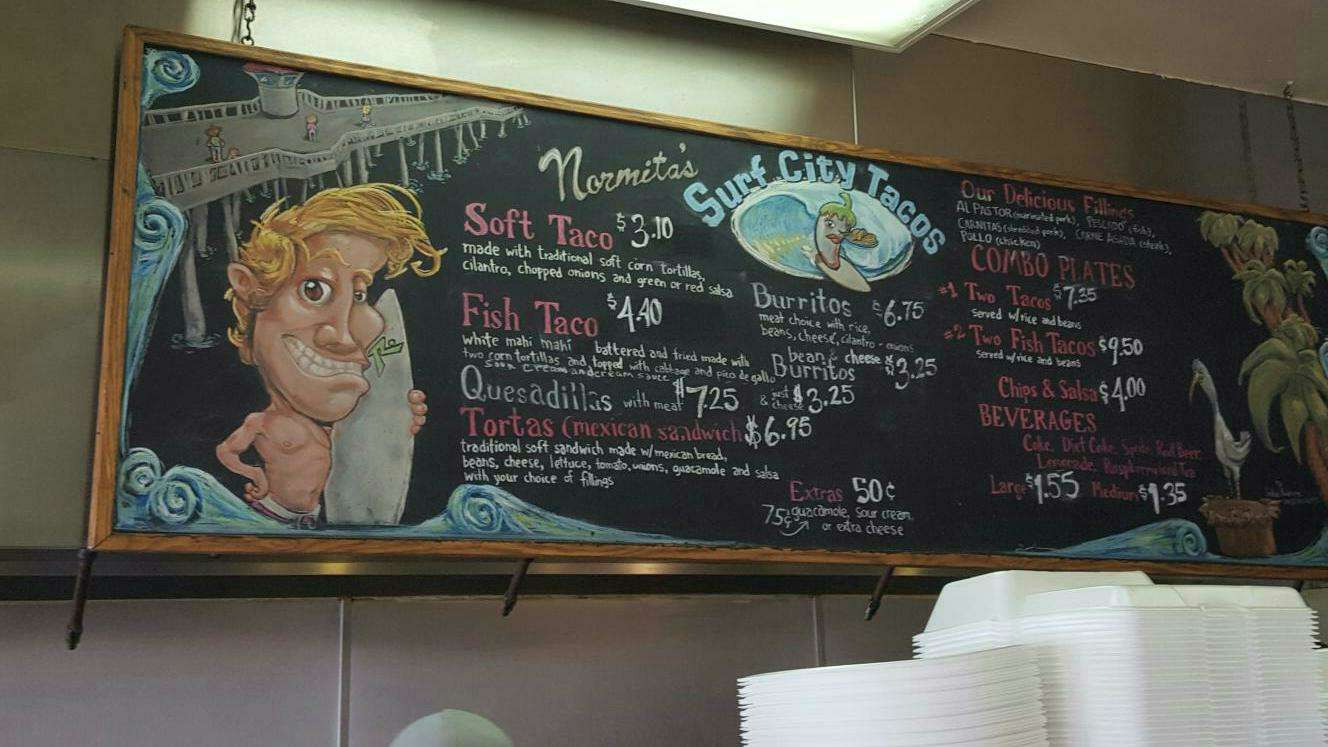 Normita's
Surf City Tacos
Soft Taco $3.10
made with traditional soft corn tortillas,
cilantro, chopped onions and green or red salsa
Fish Taco $4.40
white mahi mahi battered and fried made with
two corn tortillas and topped with cabbage and pico de gallo
sour cream and cream sauce
Quesadillas with meat $7.25
& just cheese $3.25
Tortas (mexican sandwich $6.95
traditional soft sandwich made w/mexican bread,
beans, cheese, lettuce, tomato, onions, guacamole and salsa
with your choice of fillings
Burritos $6.75
meat choice with rice,
beans, cheese, cilantro - onions
bean & cheese $3.25
Burritos
Extras 50¢
75¢ guacamole, sour cream,
or extra cheese
Our Delicious Fillings
AL PASTOR (marinated pork), PESCADO (fish),
CARNITAS (shredded pork), CARNE ASADA (steak),
POLLO (chicken)
COMBO PLATES
#1 Two Tacos $7.35
served w/rice and beans
#2 Two Fish Tacos $9.50
served w/rice and beans
Chips & Salsa $4.00
BEVERAGES
Coke, Diet Coke, Sprite, Root Beer
Lemonade, Raspberry Iced Tea
Large $1.55 Medium $1.35